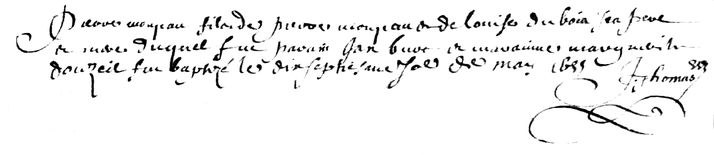 Pierre moreau filz de pierre moreau et de louise du bois sa pere
et mere duquel fut parain Jan et maraine marguerite
donzeil fut baptizé le dixseptiesme Jor de may 1655 Thomas